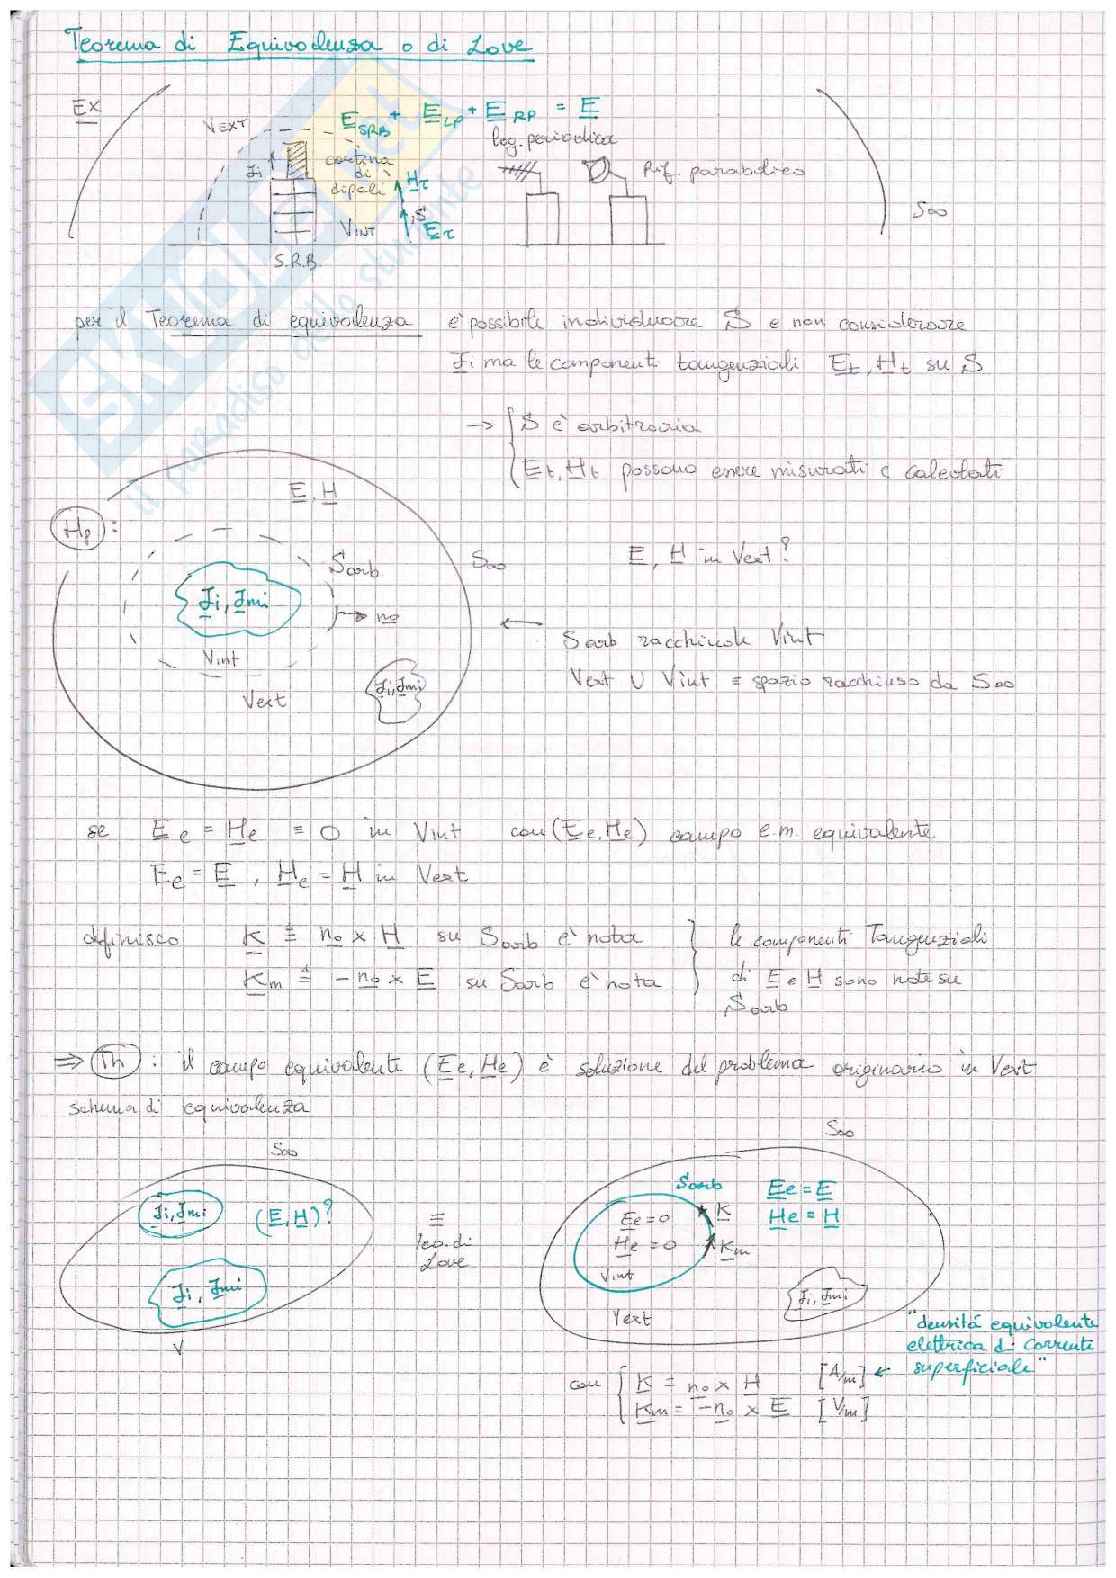 Teorema di Equivalenza o di Love
EX
VEXT
E SRB + E LP + E RP = E
log. periodica
Ji
cortina
di
dipoli
Hτ
Rif. parabolico
S∞
VINT
S
Eτ
S.R.B.
per il Teorema di equivalenza è possibile individuare S e non considerare
Ji ma le componenti tangenziali Et, Ht su S
→ { S è arbitraria
Et, Ht possono essere misurati e calcolati
E, H
Hp :
Sarb
S∞
E, H in Vext?
Ji, Jmi
n0
← Sarb racchiude Vint
Vint
Vext ∪ Vint = spazio racchiuso da S∞
Ji, Jmi
Vext
se Ee = He = 0 in Vint con (Ee, He) campo e.m. equivalente
Ee = E, He = H in Vext
definisco K ≜ n0 × H su Sarb è nota } le componenti Tangenziali
Km ≜ - n0 × E su Sarb è nota di E e H sono note su
Sarb
⇒ Th : il campo equivalente (Ee, He) è soluzione del problema originario in Vext
schema di equivalenza
S∞
S∞
Ji, Jmi
(E, H)?
≡
teo. di
Love
Ji, Jmi
V
Sarb
Ee = E
He = H
Ee = 0
He = 0
K
Km
Vint
Ji, Jmi
Vext
"densitá equivalente
elettrica di corrente
superficiale"
con { K = n0 × H [A/m] ←
Km = - n0 × E [V/m]
SKUOLA.net
il paradiso dello studente